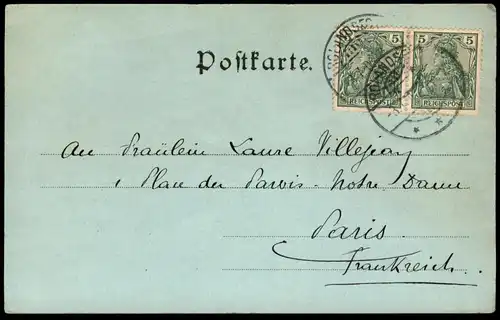 5 5
REICHSPOST REICHSPOST
Postkarte.
An Fräulein Laure
1 Place du Parvis-Notre Dame
Paris
Frankreich.